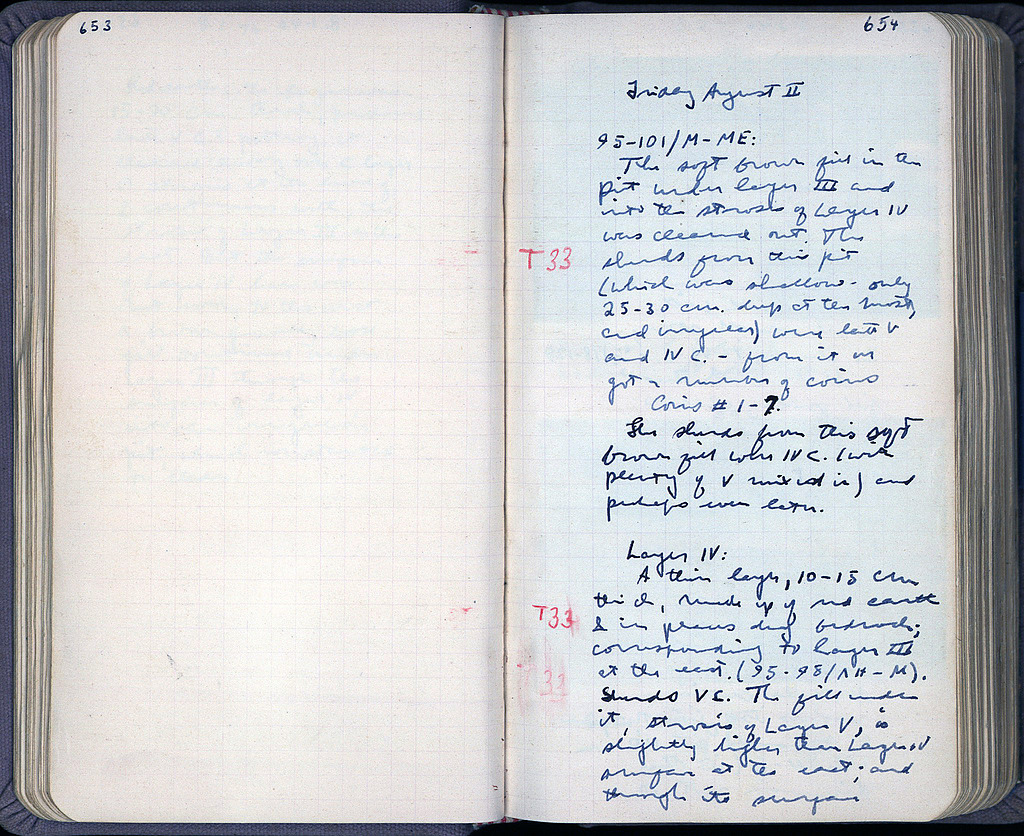 653
654
Friday August II
95-101/M-ME:
The soft brown fill in the
pit under layer III and
into the strosis of Layer IV
was cleared out. The
T 33
sherds from this pit
(which was shallow - only
25-30 cm. deep at the most,
and irregular) were late V
and IV C. - from it we
got a number of coins
Coins # 1-7.
The sherds from this soft
brown fill were IV C. (with
plenty of V mixed in) and
perhaps even later.
Layer IV:
A thin layer, 10-15 cm
T33
thick, made up of red earth
& in places dug bedrock;
corresponding to Layer III
at the east. (95-98/ΛΗ-Μ).
33
Sherds V C. The fill under
it, strosis of Layer V, is
slightly higher than Layer IV
surface at the east; and
through its surface